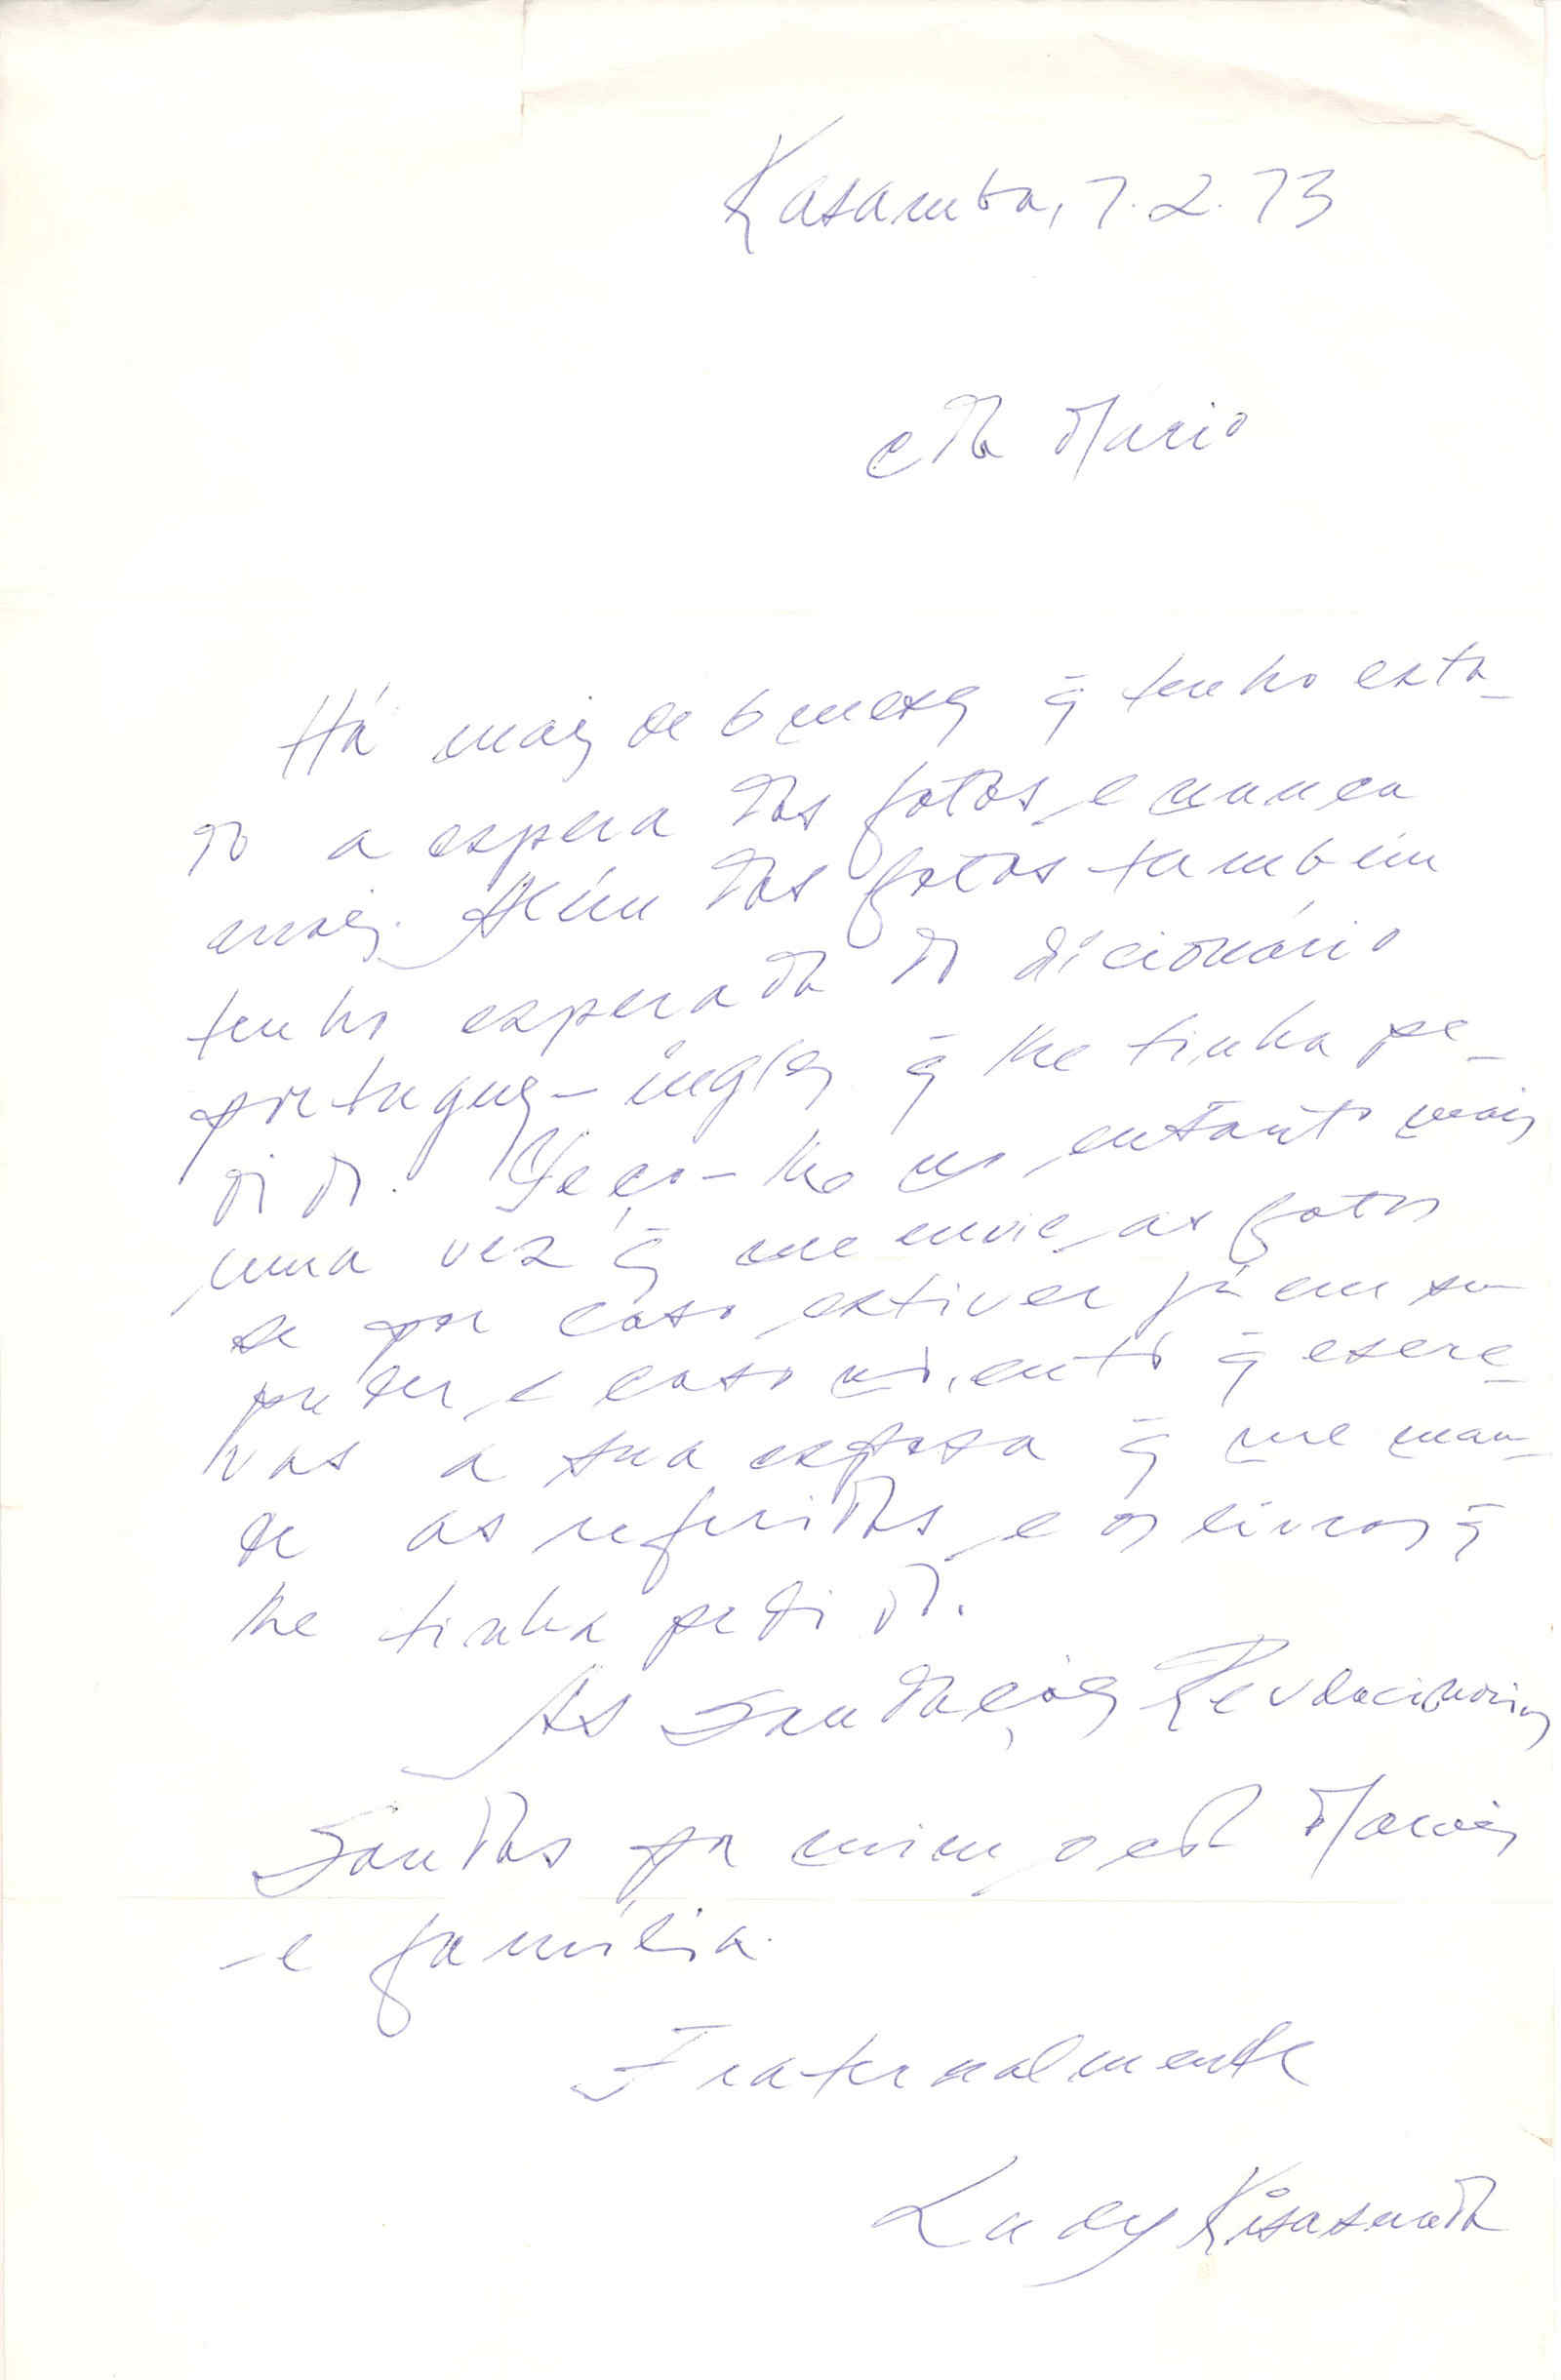 Kasamba, 7.2.73
cda Mário
Há mais de 6 meses q̄ tenho esta-
do a espera das fotos e nunca
mais. Além das fotos também
tenho esperado do dicionário
portugues-ingles q̄ lhe tinha pe-
dido. Peço-lhe no entanto mais
uma vez q̄ me envie as fotos
se por caso estiver já em seu
poder e caso não, entó q̄ escre-
vas a sua esposa q̄ me man-
de as referidas e os livros q̄
lhe tinha pedido.
As Saudações Revolucionárias
Saudas por mim, o cda
e família.
Fraternalmente
Ludy Kisasunda